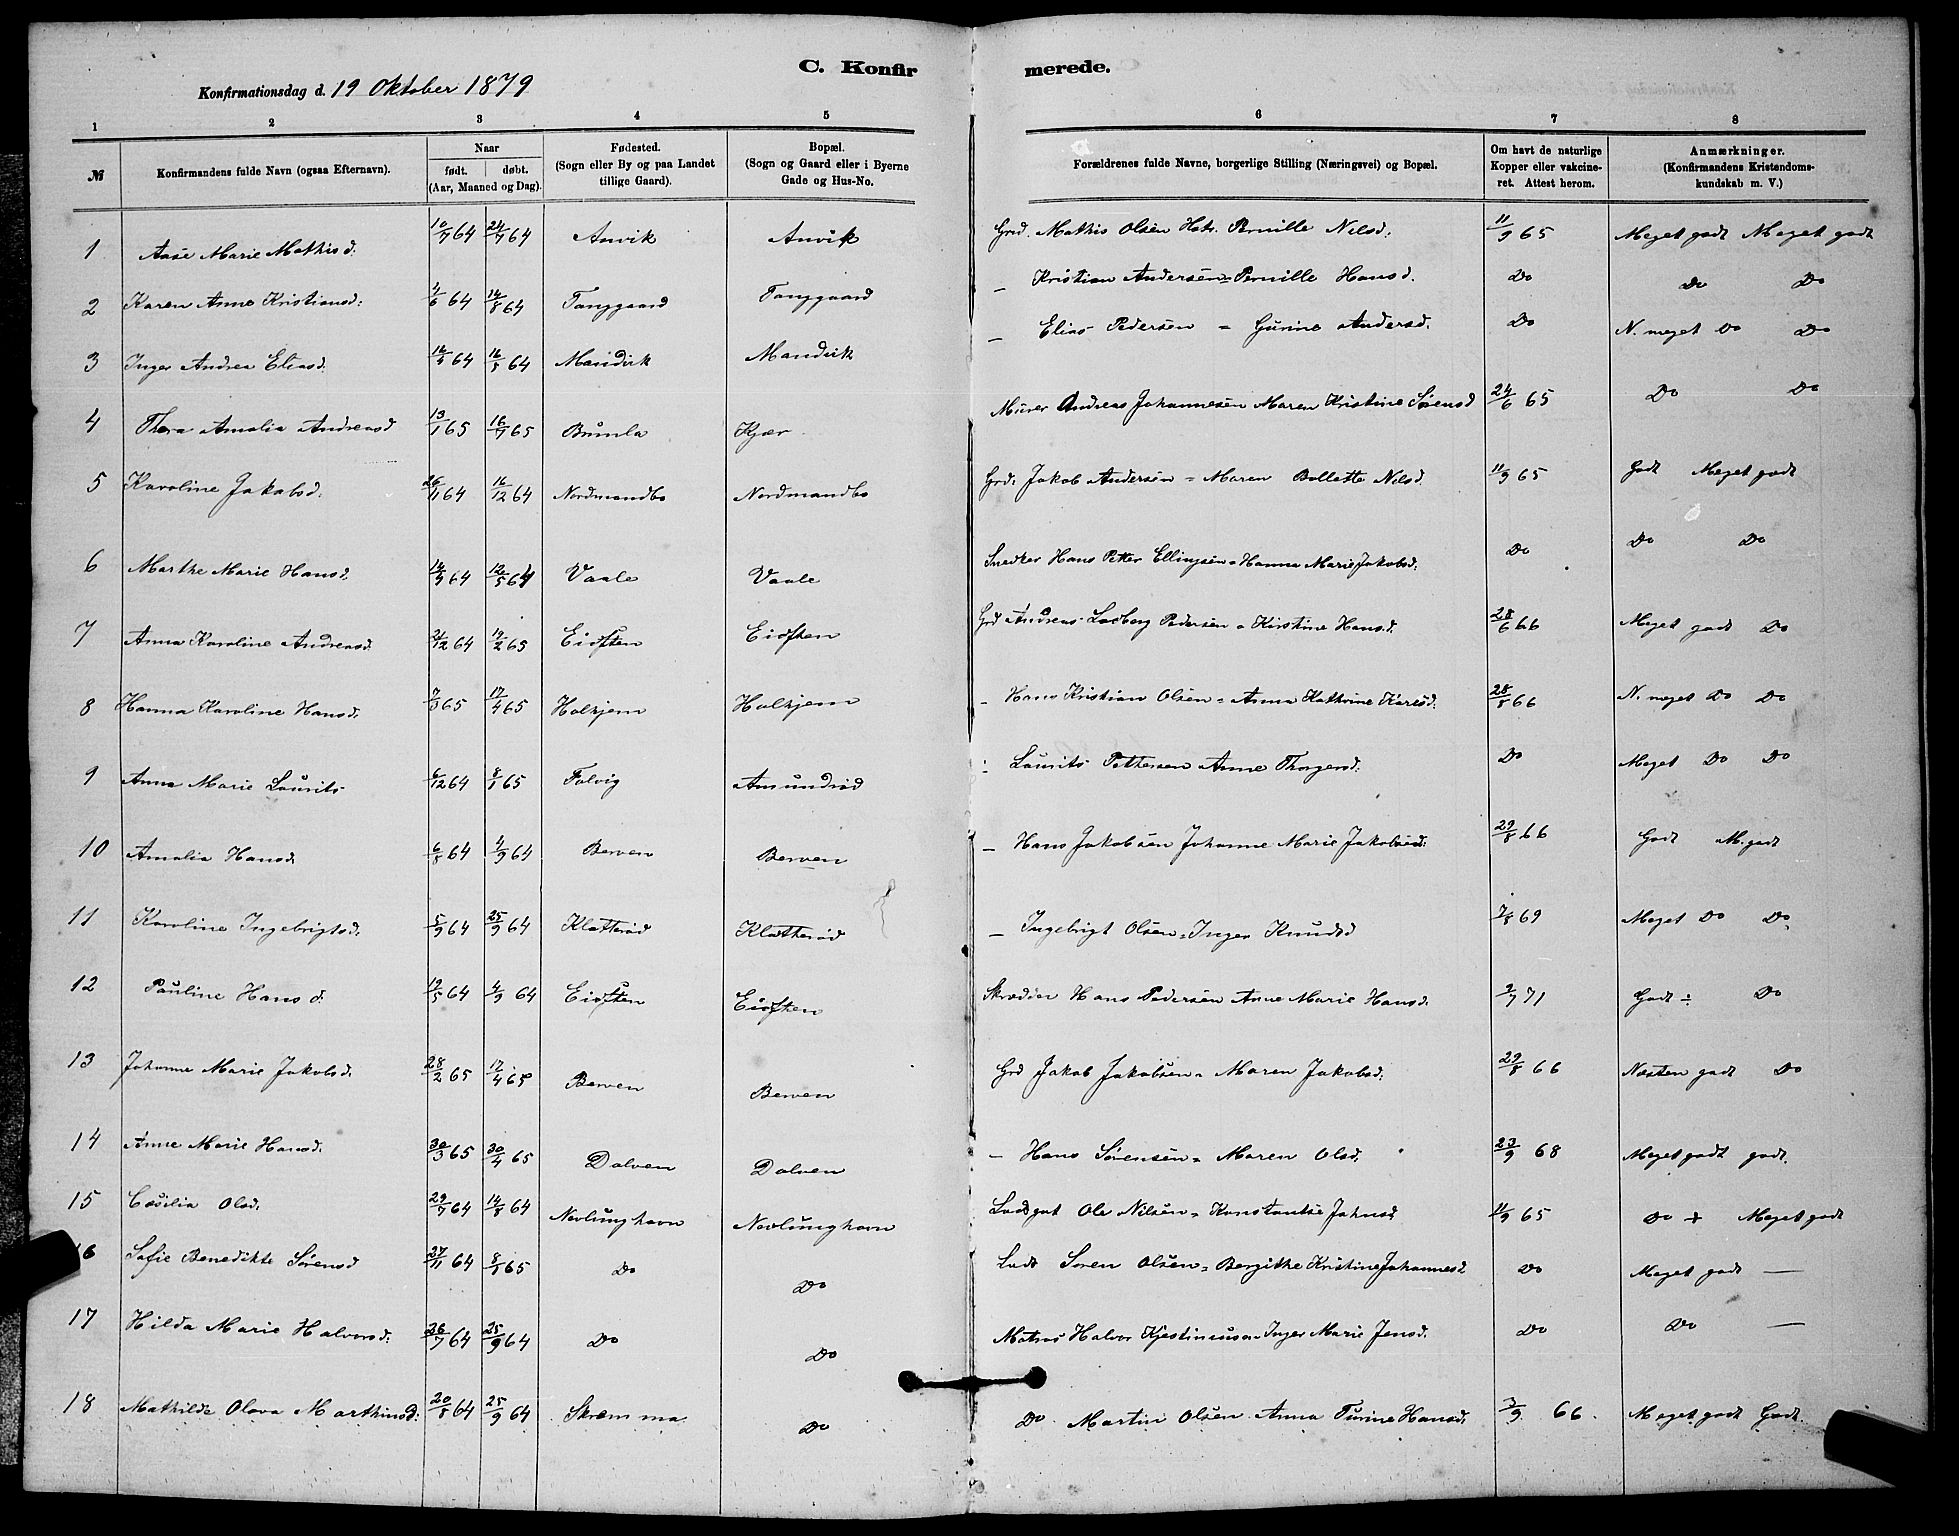 C. Konfirmerede.
Konfirmationsdag d. 19 Oktober 1879
1 2 3 4 5 6 7 8
№ | Konfirmandens fulde Navn (ogsaa Efternavn). | Naar født. døbt. (Aar, Maaned og Dag). | Fødested. (Sogn eller By og paa Landet tillige Gaard). | Bopæl. (Sogn og Gaard eller i Byerne Gade og Hus-No. | Forældrenes fulde Navne, borgerlige Stilling (Næringsvei) og Bopæl. | Om havt de naturlige Kopper eller vakcineret. Attest herom. | Anmærkninger. (Konfirmandens Kristendomskundskab m. V.)
1 Aase Marie Mathisd: 10/7 64 24/7 64 Anvik Anvik Grd. Mathis Olsen Hstr. Pernille Nilsd. 11/9 65 Meget godt Meget godt
2 Karen Anne Kristiansd: 4/6 64 14/8 64 Tanggaard Tanggaard – Kristian Andersen = Pernille Hansd. Do Do Do
3 Inger Andrea Eliasd. 64 16/8 64 Mandvik Mandvik – Elias Pedersen = Gurine Andersd. Do N. meget Do Do
4 Thora Amalia Andreasd 13/1 65 16/7 65 Brunla Kjær Murer Andreas Johannesen Maren Kristine Sørensd 24/6 65 Do Do
5 Karoline Jakobsd. 26/11 64 16/12 64 Nordmandbo Nordmandbo Grd. Jakob Andersen = Maren Bollette Nilsd. 11/9 65 Godt Meget godt
6 Marthe Marie Hansd. 64 12/5 64 Vaale Vaale Snedker Hans Petter Ellingsen = Hanna Marie Jakobsd: Do Do Do
7 Anna Karoline Andreasd. 21/12 64 19/2 65 Eidsten Eidsten Grd Andreas Ladberg Pedersen = Kristine Hansd. 28/6 66 Meget godt Do
8 Hanna Karoline Hansd. 7/3 65 17/4 65 Holkjem Holkjem – Hans Kristian Olsen = Anna Kathrine Karesd. 28/8 66 N. meget Do Do
9 Anna Marie Laurits 6/12 64 8/1 65 Folvig Amundrød – Laurits Pettersen Anne Thorgersd. Do Meget Do Do
10 Amalia Hansd. 6/8 64 4/9 64 Berven Berven – Hans Jakobsen Johanne Marie Jakobsd: 29/8 66 Godt M. godt
11 Karoline Ingebrigtsd. 5/9 64 25/9 64 Klatterød Klatterød – Ingebrigt Olsen = Inger Knudsd 7/8 69 Meget Do Do
12 Pauline Hansd. 19/5 64 4/9 64 Eidsten Eidsten Skrædder Hans Pedersen Anne Marie Hansd. 2/7 71 Godt ÷ Do
13 Johanne Marie Jakobsd. 28/2 65 17/4 65 Berven Berven Grd Jakob Jakobsen = Maren Jakobsd. 29/8 66 Næsten godt Do
14 Anne Marie Hansd. 30/3 65 30/4 65 Dolven Dolven – Hans Sørensen = Maren Olsd. 23/9 68 Meget godt godt.
15 Cæcilia Olsd. 29/7 64 14/8 64 Nevlunghavn Nevlunghavn Lods Ole Nilsen = Konstantse Johnsd 11/9 65 Do + Meget godt
16 Sofie Benedikte Sørensd 27/11 64 8/1 65 Do Do Lods Søren Olsen = Bergithe Kristine Johannesd Do Meget godt —
17 Hilda Marie Halvorsd: 26/7 64 25/9 64 Do Do Matros Halvor Kjestinusen = Inger Marie Jensd. Do Do —
18 Mathilde Olava Marthinsd: 20/8 64 25/9 64 Skræmma Do Do. Martin Olsen Anna Turine Hansd. 3/9 66. Meget godt Godt.